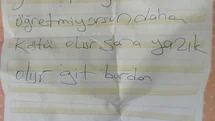 öğretmiyorsun daha
kötü olur. Sana yazık
olur git burdan